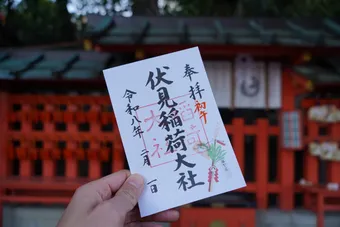 奉拝
初午
伏見稲荷大社
令和八年二月一日